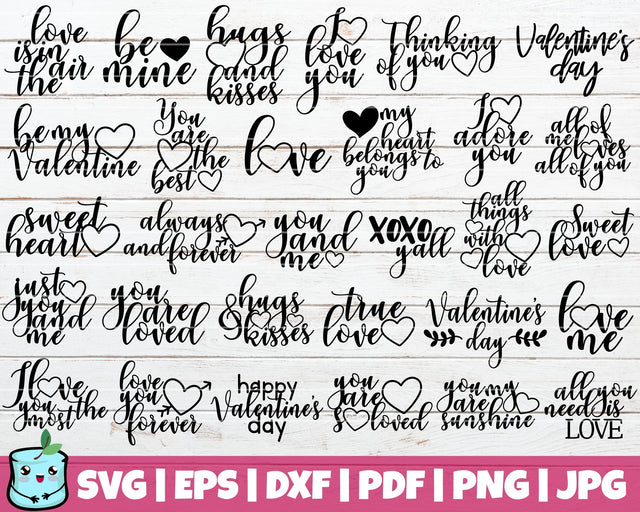 love
is in
the air
be
mine
hugs
and
kisses
I
love
you
Thinking
of you
Valentine's
day
be my
Valentine
You
are
the
best
love
my
heart
belongs to
you
I
adore
you
all of
me loves
all of you
sweet
heart
always
and forever
you
and
me
XOXO
y'all
all
things
with
love
Sweet
love
just
you
and
me
you
are
loved
hugs
&
kisses
true
love
Valentine's
day
love
me
I love
you
most the
love
you
forever
happy
Valentine's
day
you
are
so loved
you my
are
sunshine
all you
need is
LOVE
SVG | EPS | DXF | PDF | PNG | JPG